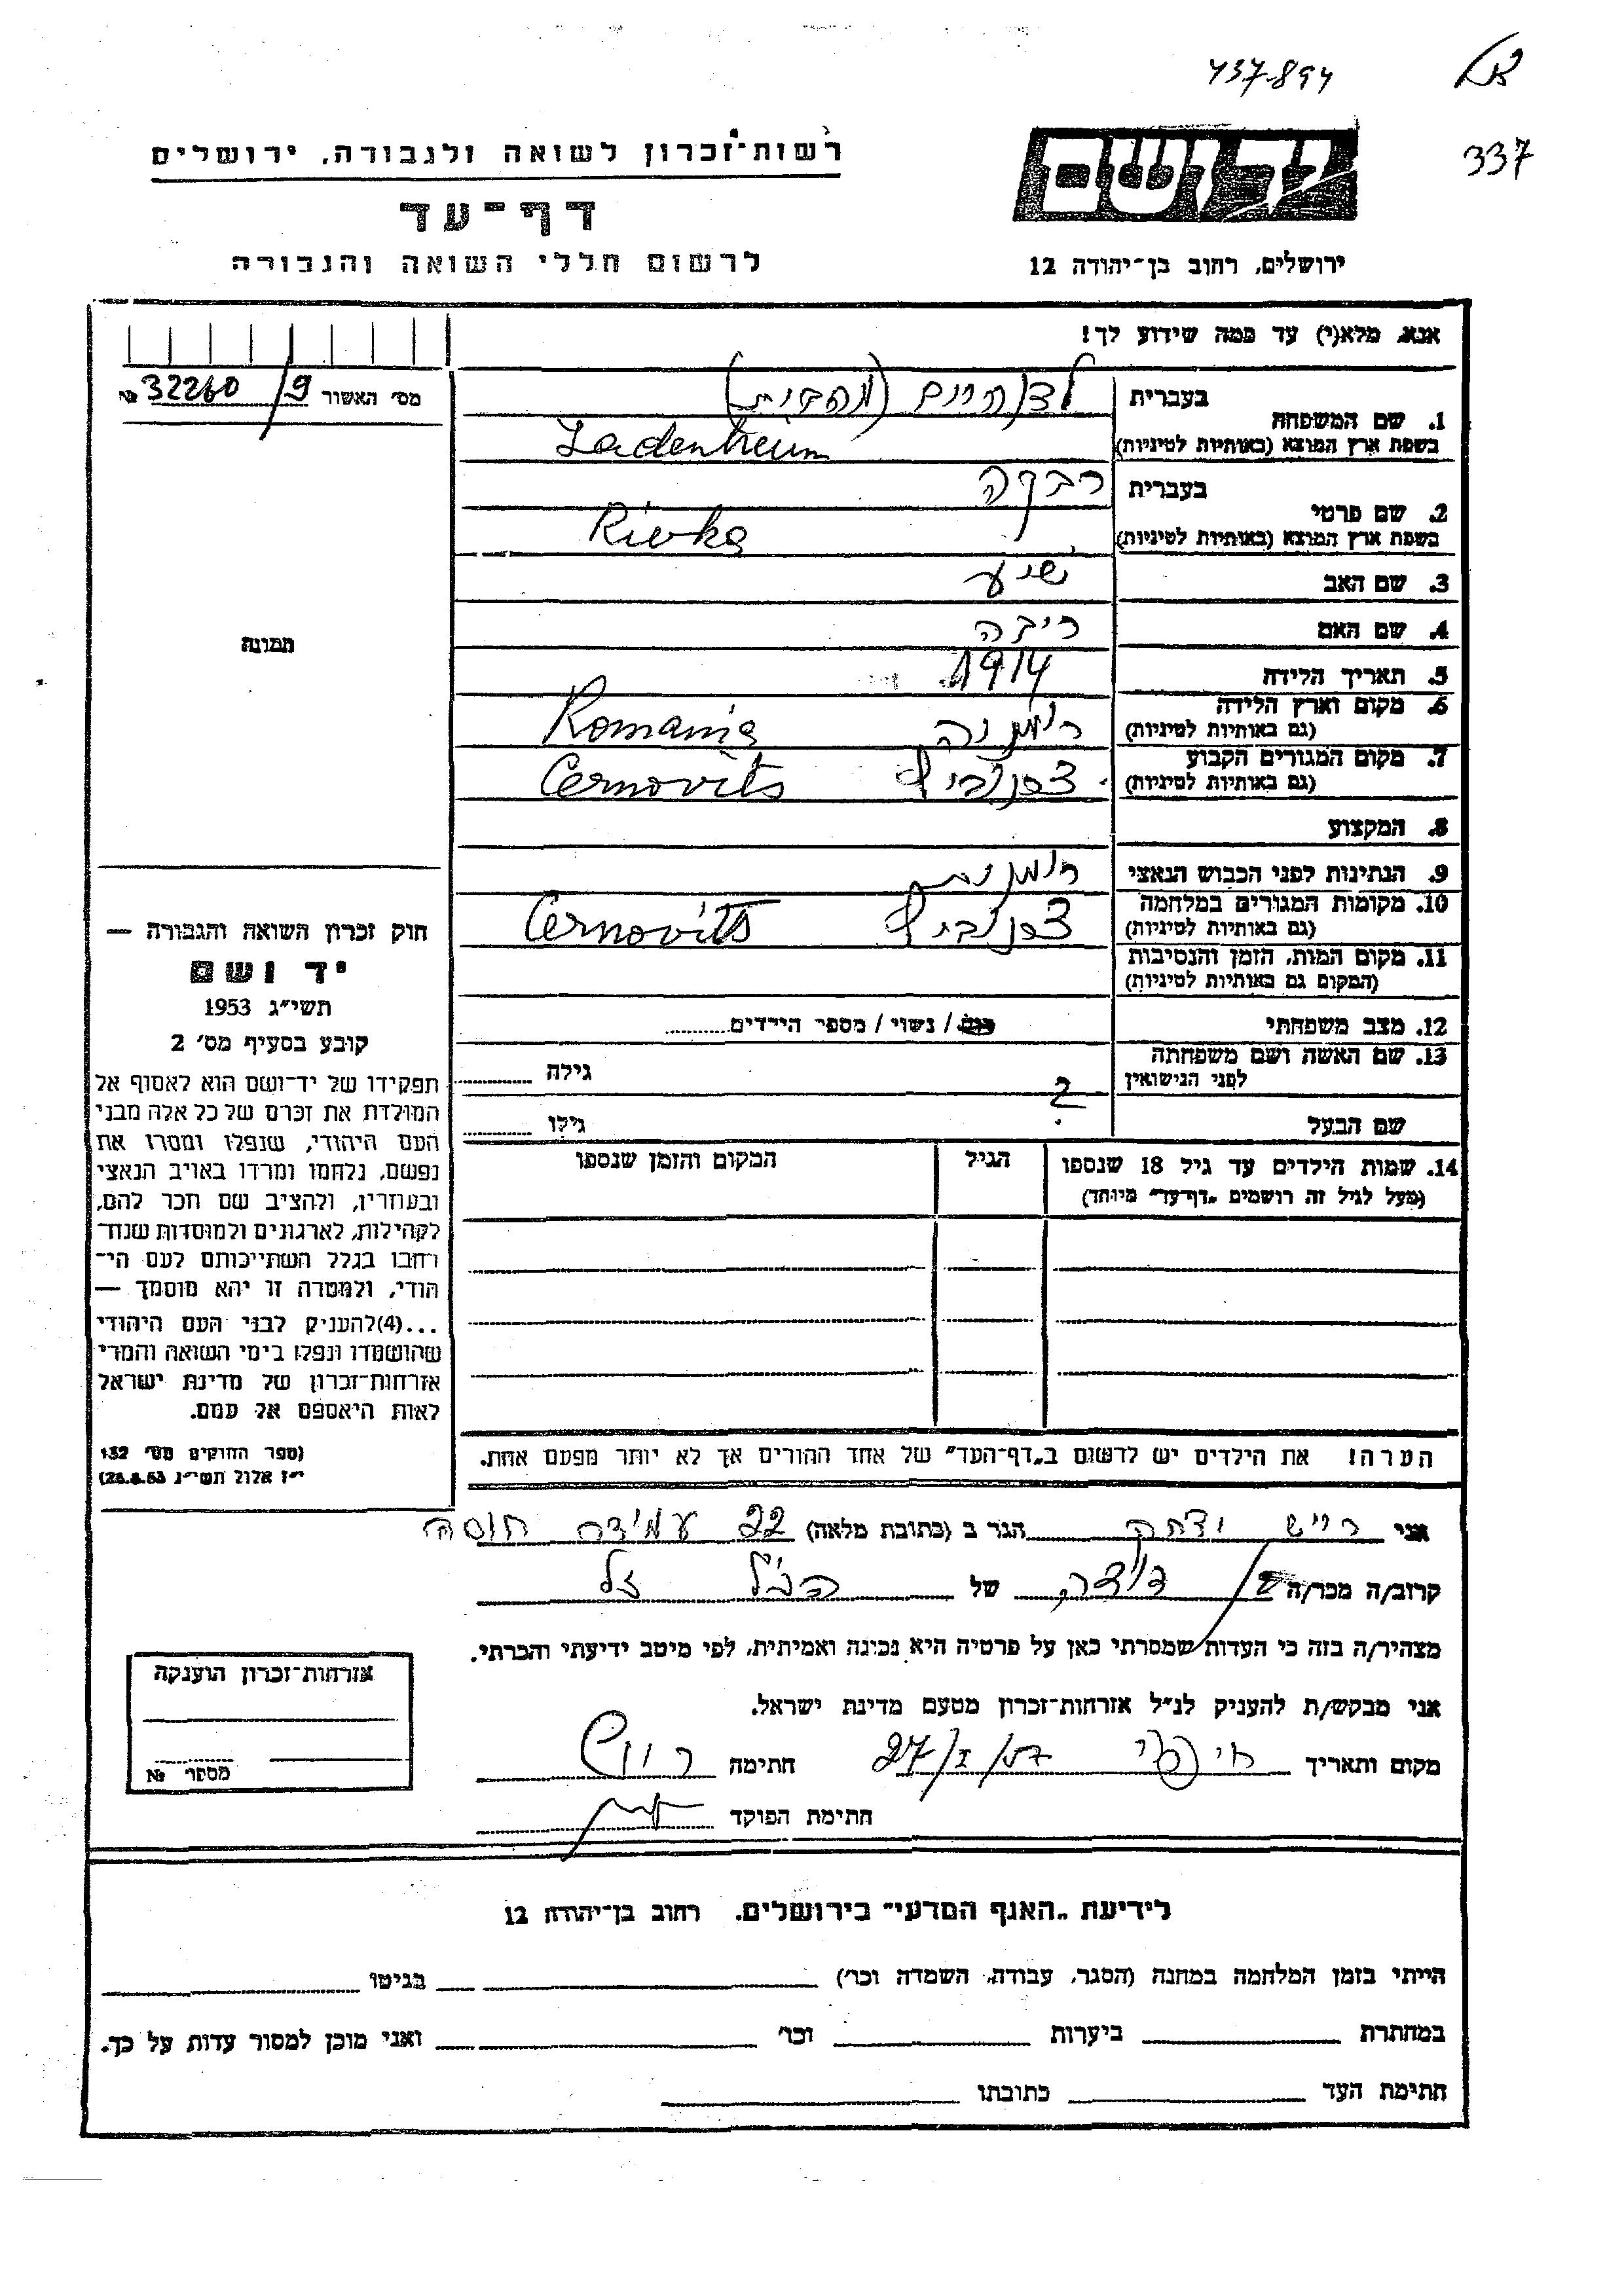 437-894
337
רשות־זכרון לשואה ולגבורה, ירושלים
דף־עד
לרשום חללי השואה והגבורה
ירושלים, רחוב בן־יהודה 12
אנא, מלא(י) עד כמה שידוע לך!
מס׳ האשור 32260/9 №
בעברית
1. שם המשפחה
בשפת ארץ המוצא (באותיות לטיניות) Ladenheim
בעברית רבקה
2. שם פרטי
בשפת ארץ המוצא (באותיות לטיניות) Rivka
3. שם האב
4. שם האם
5. תאריך הלידה 1914
6. מקום וארץ הלידה רומניה Romania
(גם באותיות לטיניות)
7. מקום המגורים הקבוע Cernovits
(גם באותיות לטיניות)
8. המקצוע
9. הנתינות לפני הכבוש הנאצי רומנית
10. מקומות המגורים במלחמה Cernovits
(גם באותיות לטיניות)
11. מקום המות, הזמן והנסיבות
(המקום גם באותיות לטיניות)
12. מצב משפחתי / נשוי / מספר הילדים
13. שם האשה ושם משפחתה גילה
לפני הנישואין
?
שם הבעל גילו
14. שמות הילדים עד גיל 18 שנספו הגיל המקום והזמן שנספו
(מעל לגיל זה רושמים „דף־עד״ מיוחד)
הערה! את הילדים יש לרשום ב„דף־העד״ של אחד ההורים אך לא יותר מפעם אחת.
תמונה
חוק זכרון השואה והגבורה —
יד ושם
תשי״ג 1953
קובע בסעיף מס׳ 2
תפקידו של יד־ושם הוא לאסוף אל
המולדת את זכרם של כל אלה מבני
העם היהודי, שנפלו ומסרו את
נפשם, נלחמו ומרדו באויב הנאצי
ובעוזריו, ולהציב שם וזכר להם,
לקהילות, לארגונים ולמוסדות שנח־
רבו בגלל השתייכותם לעם הי־
הודי, ולמטרה זו יהא מוסמך —
...(4)להעניק לבני העם היהודי
שהושמדו ונפלו בימי השואה והמרי
אזרחות־זכרון של מדינת ישראל
לאות היאספם אל עמם.
(ספר החוקים מס׳ 132
י״ז אלול תשי״ג 28.8.53)
אני הגר ב (כתובת מלאה) 22
קרוב/ה מכר/ה של הנ״ל ז״ל
מצהיר/ה בזה כי העדות שמסרתי כאן על פרטיה היא נכונה ואמיתית, לפי מיטב ידיעתי והכרתי.
אני מבקש/ת להעניק לנ״ל אזרחות־זכרון מטעם מדינת ישראל.
מקום ותאריך 27/I/57 חתימה
חתימת הפוקד
אזרחות־זכרון הוענקה
מספר №
לידיעת „האגף המדעי״ בירושלים, רחוב בן־יהודה 12
הייתי בזמן המלחמה במחנה (הסגר, עבודה, השמדה וכו׳) בגיטו
במחתרת ביערות וכו׳ ואני מוכן למסור עדות על כך.
חתימת העד כתובתו